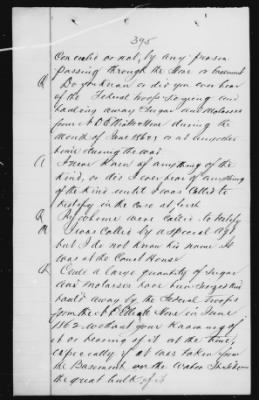 395
Concealed or not, by any person
passing through the Store or basement
Q Do you know or did you ever hear
of the Federal troops seizing and
hauling away Sugar and Molasses
from A. D. Store during the
month of June 1862, or at any other
time during the war
A I never knew of anything of the
kind, or did I ever hear of anything
of the kind until I was called to
testify in the case at first
Q By whom were called to testify
A I was called by a special Agt.
but I do not know his name It
was at the Court House
Q Could a large quantity of Sugar
and Molasses have been seized and
hauld away by the Federal troops
from the Store in June
1862 without your knowing of
it or hearing of it at the time,
especially if it was taken from
the Basement on the Water Side
the great bulk of it